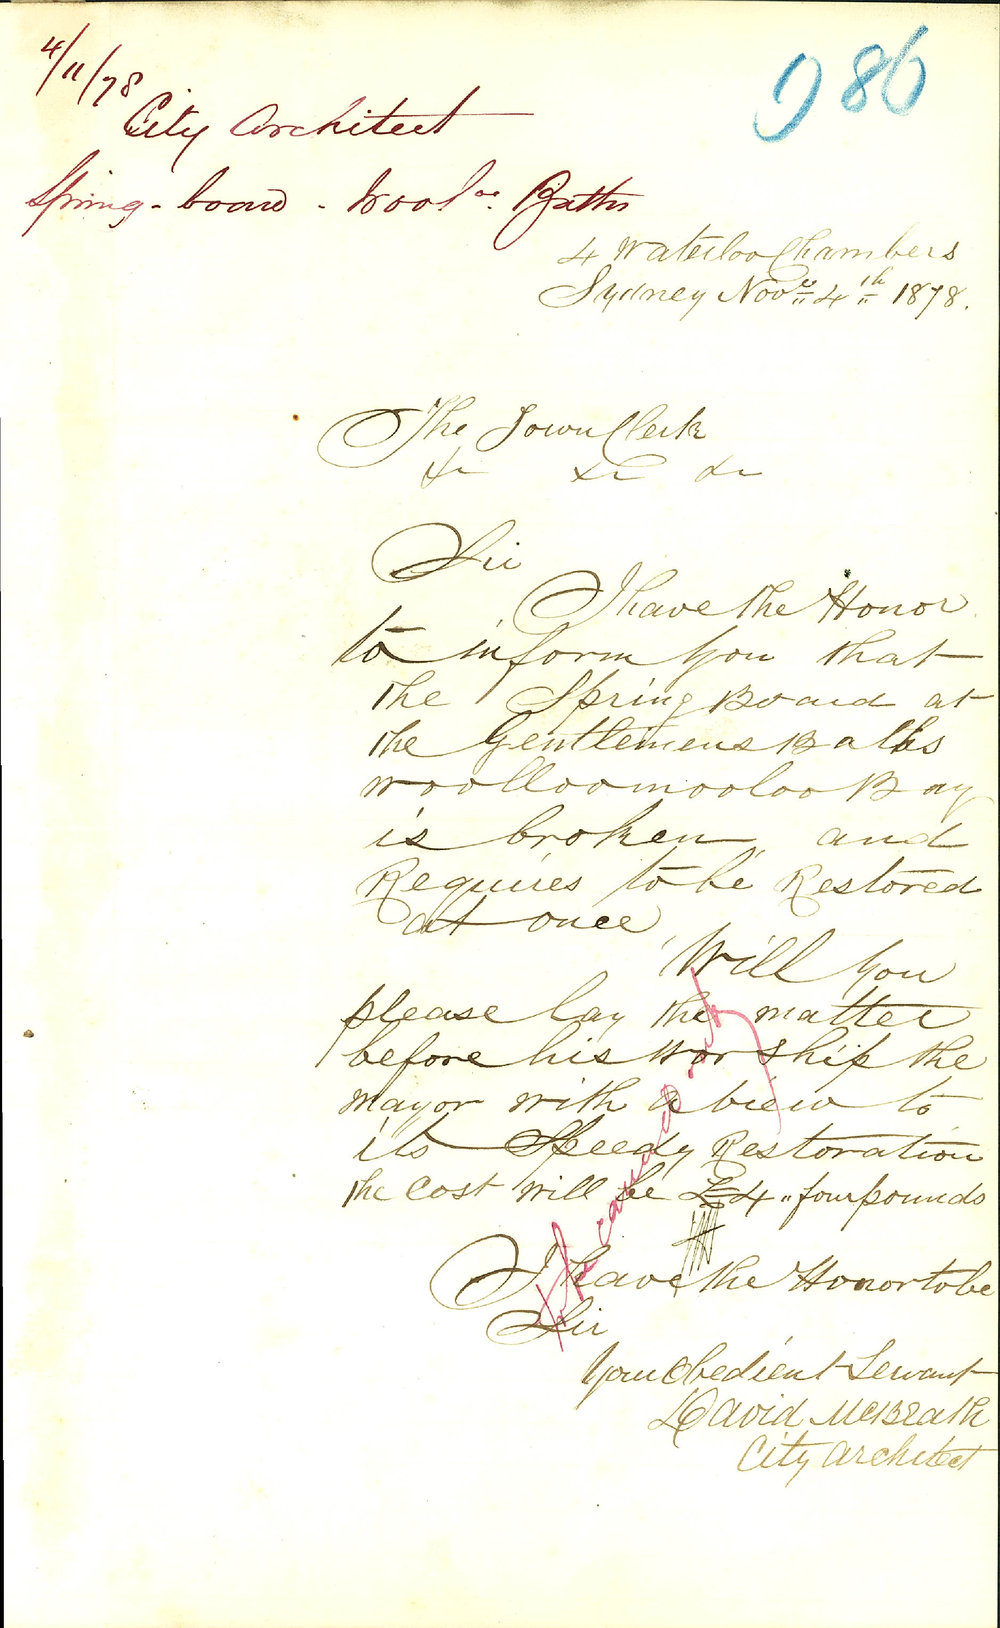 4/11/78
986
City Architect
Spring-board - Wool^oo. Baths
4 Waterloo Chambers
Sydney Nov^r 4^th 1878.
The Town Clerk
&c &c &c
Sir
I have the Honor
to inform you that
the Spring Board at
the Gentlemens Baths
Woolloomooloo Bay
is broken, and
Requires to be Restored
at once,
Will you
please lay the matter
before his Worship the
Mayor with a view to
its Speedy Restoration
the Cost will be £4 ,, four pounds
I have the Honor to be
Sir
Your Obedient Servant
David McBeath
City Architect
carried out